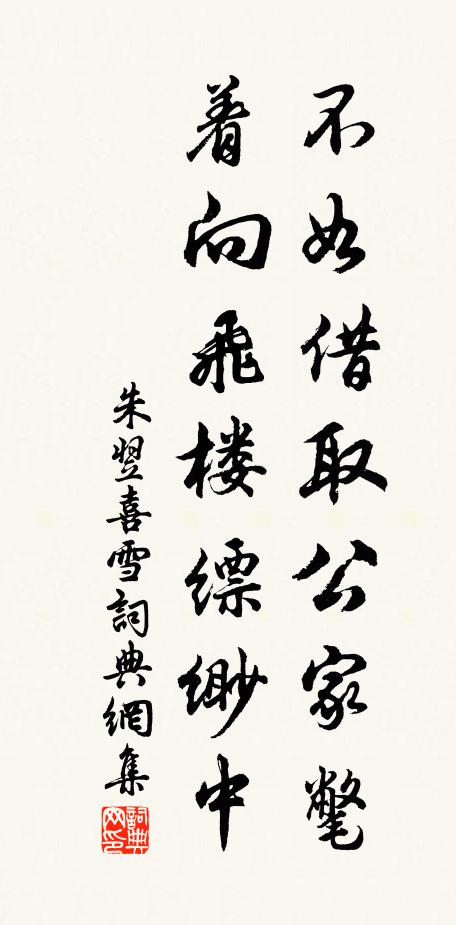 不如借取公家氅
着向飛楼縹緲中
朱翌喜雪詞典網集
詞典网印